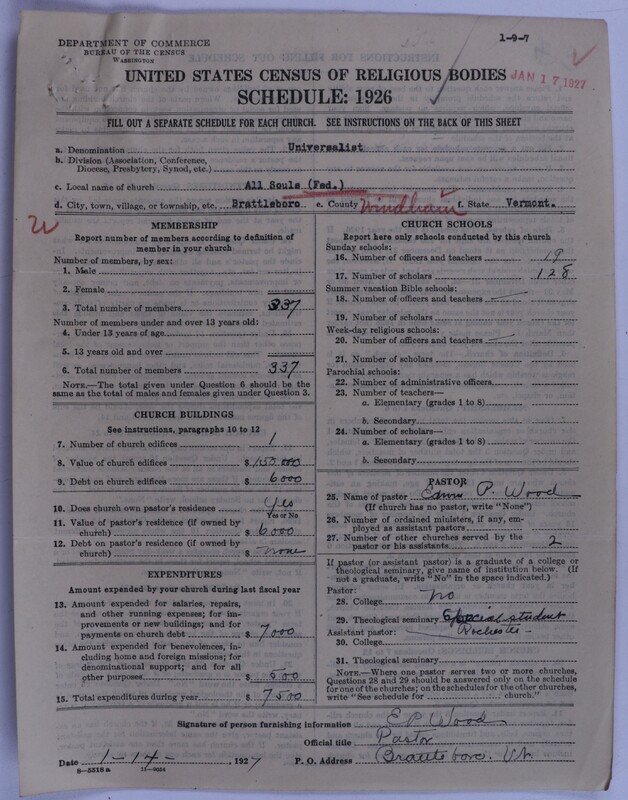 DEPARTMENT OF COMMERCE
BUREAU OF THE CENSUS
WASHINGTON
1-9-7
UNITED STATES CENSUS OF RELIGIOUS BODIES
JAN 17 1927
SCHEDULE: 1926
FILL OUT A SEPARATE SCHEDULE FOR EACH CHURCH. SEE INSTRUCTIONS ON THE BACK OF THIS SHEET
a. Denomination Universalist
b. Division (Association, Conference,
Diocese, Presbytery, Synod, etc.)
c. Local name of church All Souls (Fed.)
d. City, town, village, or township, etc. Brattleboro e. County Windham f. State Vermont.
MEMBERSHIP
Report number of members according to definition of
member in your church
Number of members, by sex:
1. Male
2. Female
3. Total number of members 337
Number of members under and over 13 years old:
4. Under 13 years of age
5. 13 years old and over
6. Total number of members 337
NOTE.—The total given under Question 6 should be the
same as the total of males and females given under Question 3.
CHURCH BUILDINGS
See instructions, paragraphs 10 to 12
7. Number of church edifices 1
8. Value of church edifices $150,000
9. Debt on church edifices $6000
10. Does church own pastor's residence Yes
Yes or No
11. Value of pastor's residence (if owned by
church) $6000
12. Debt on pastor's residence (if owned by
church) $none
EXPENDITURES
Amount expended by your church during last fiscal year
13. Amount expended for salaries, repairs,
and other running expenses; for im-
provements or new buildings; and for
payments on church debt $7000
14. Amount expended for benevolences, in-
cluding home and foreign missions; for
denominational support; and for all
other purposes $500
15. Total expenditures during year $7500
CHURCH SCHOOLS
Report here only schools conducted by this church
Sunday schools:
16. Number of officers and teachers 19
17. Number of scholars 128
Summer vacation Bible schools:
18. Number of officers and teachers
19. Number of scholars
Week-day religious schools:
20. Number of officers and teachers
21. Number of scholars
Parochial schools:
22. Number of administrative officers
23. Number of teachers—
a. Elementary (grades 1 to 8)
b. Secondary
24. Number of scholars—
a. Elementary (grades 1 to 8)
b. Secondary
PASTOR
25. Name of pastor P. Wood
(If church has no pastor, write "None")
26. Number of ordained ministers, if any, em-
ployed as assistant pastors
27. Number of other churches served by the
pastor or his assistants 2
If pastor (or assistant pastor) is a graduate of a college or
theological seminary, give name of institution below. (If
not a graduate, write "No" in the space indicated.)
Pastor:
28. College no
29. Theological seminary Special student
Assistant pastor: Rochester
30. College
31. Theological seminary
NOTE.—Where one pastor serves two or more churches,
Questions 28 and 29 should be answered only on the schedule
for one of the churches; on the schedules for the other churches,
write "See schedule for church."
Signature of person furnishing information E P Wood
Official title Pastor
Date 1-14-, 1927 P. O. Address Brattleboro. Vt.
8-5518a 11-9664